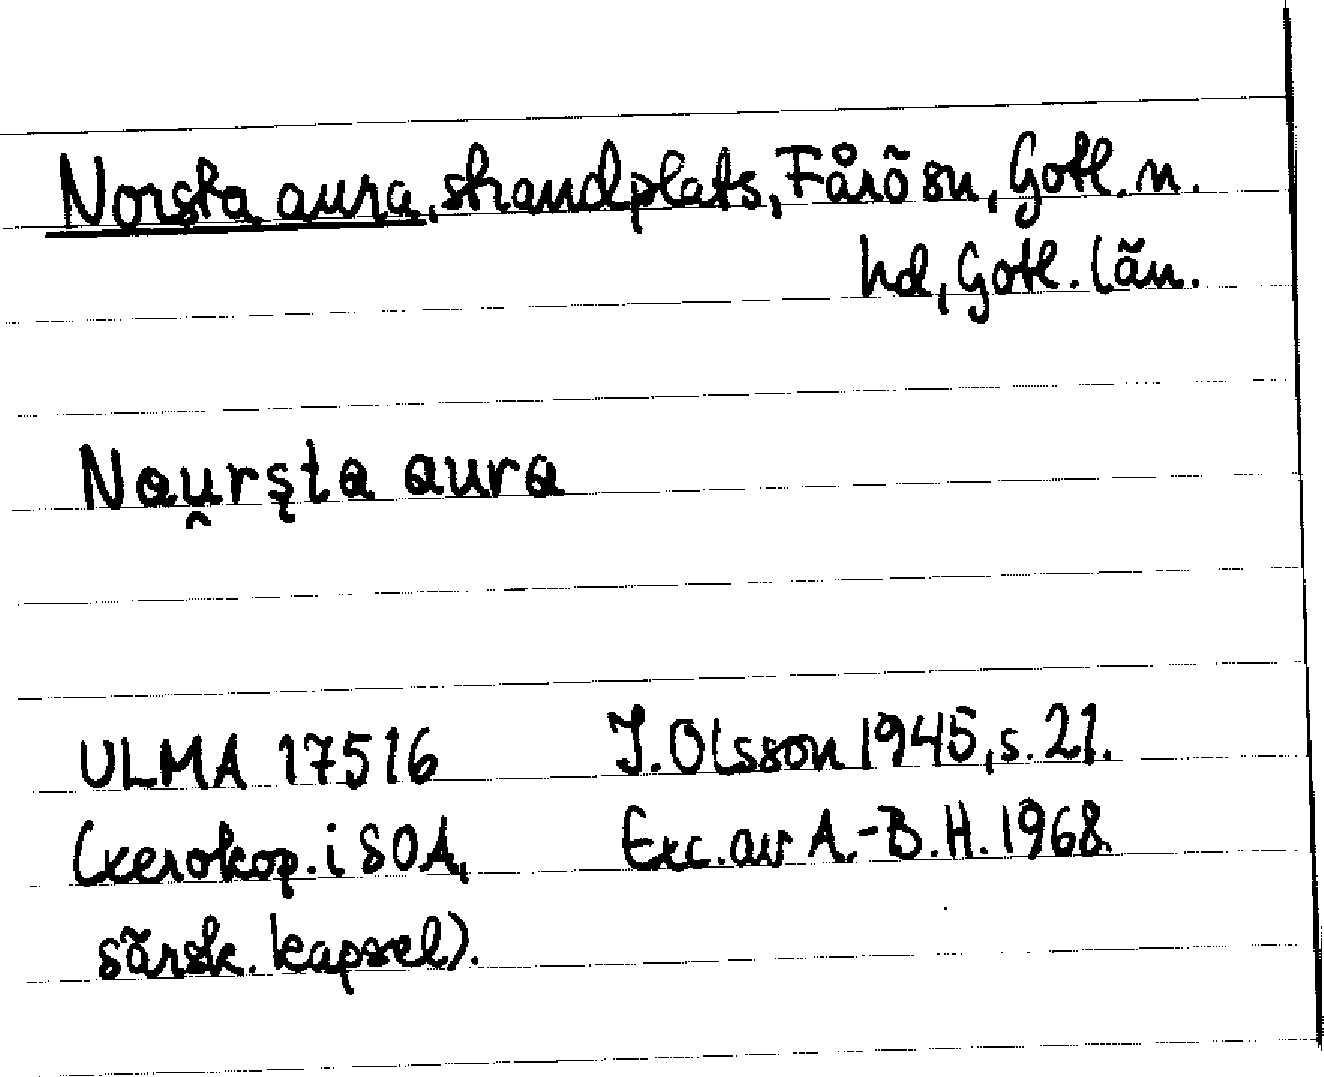 Norsta aura, strandplats, Fårö sn, Gotl. n.
hd, Gotl. län.
Nau̯rşta aura
ULMA 17516 J. Olsson 1945, s. 21.
(xerokop. i SOA, Exc. av A.-B. H. 1968.
särsk. kapsel).